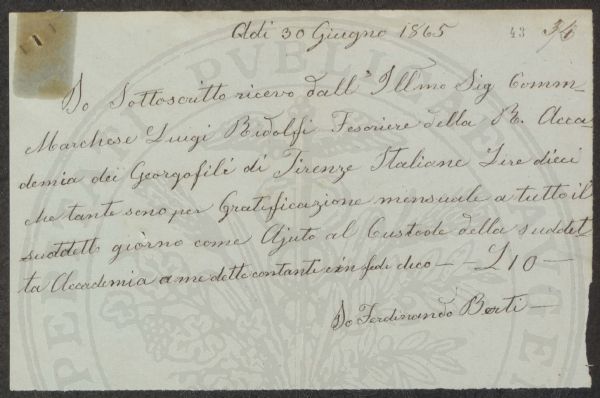 Adi 30 Giugno 1865 43 34
Io Sottoscritto ricevo dall' Illmo Sig Comm-
Marchese Luigi Ridolfi Tesoriere della R. Acca-
demia dei Georgofili di Firenze Italiane Lire dieci
che tante sono per Gratificazione mensuale a tutto il
suddetto giorno come Ajuto al Custode della suddet-
ta Accademia a me dette contante e in fede dico — £10 —
Io Ferdinando Berti —